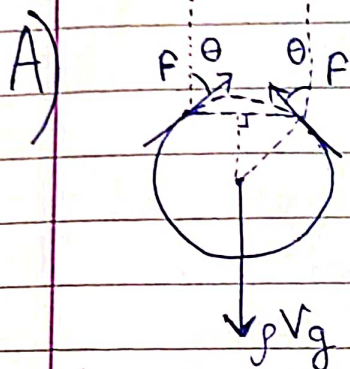 A)
F θ θ F
ρVg